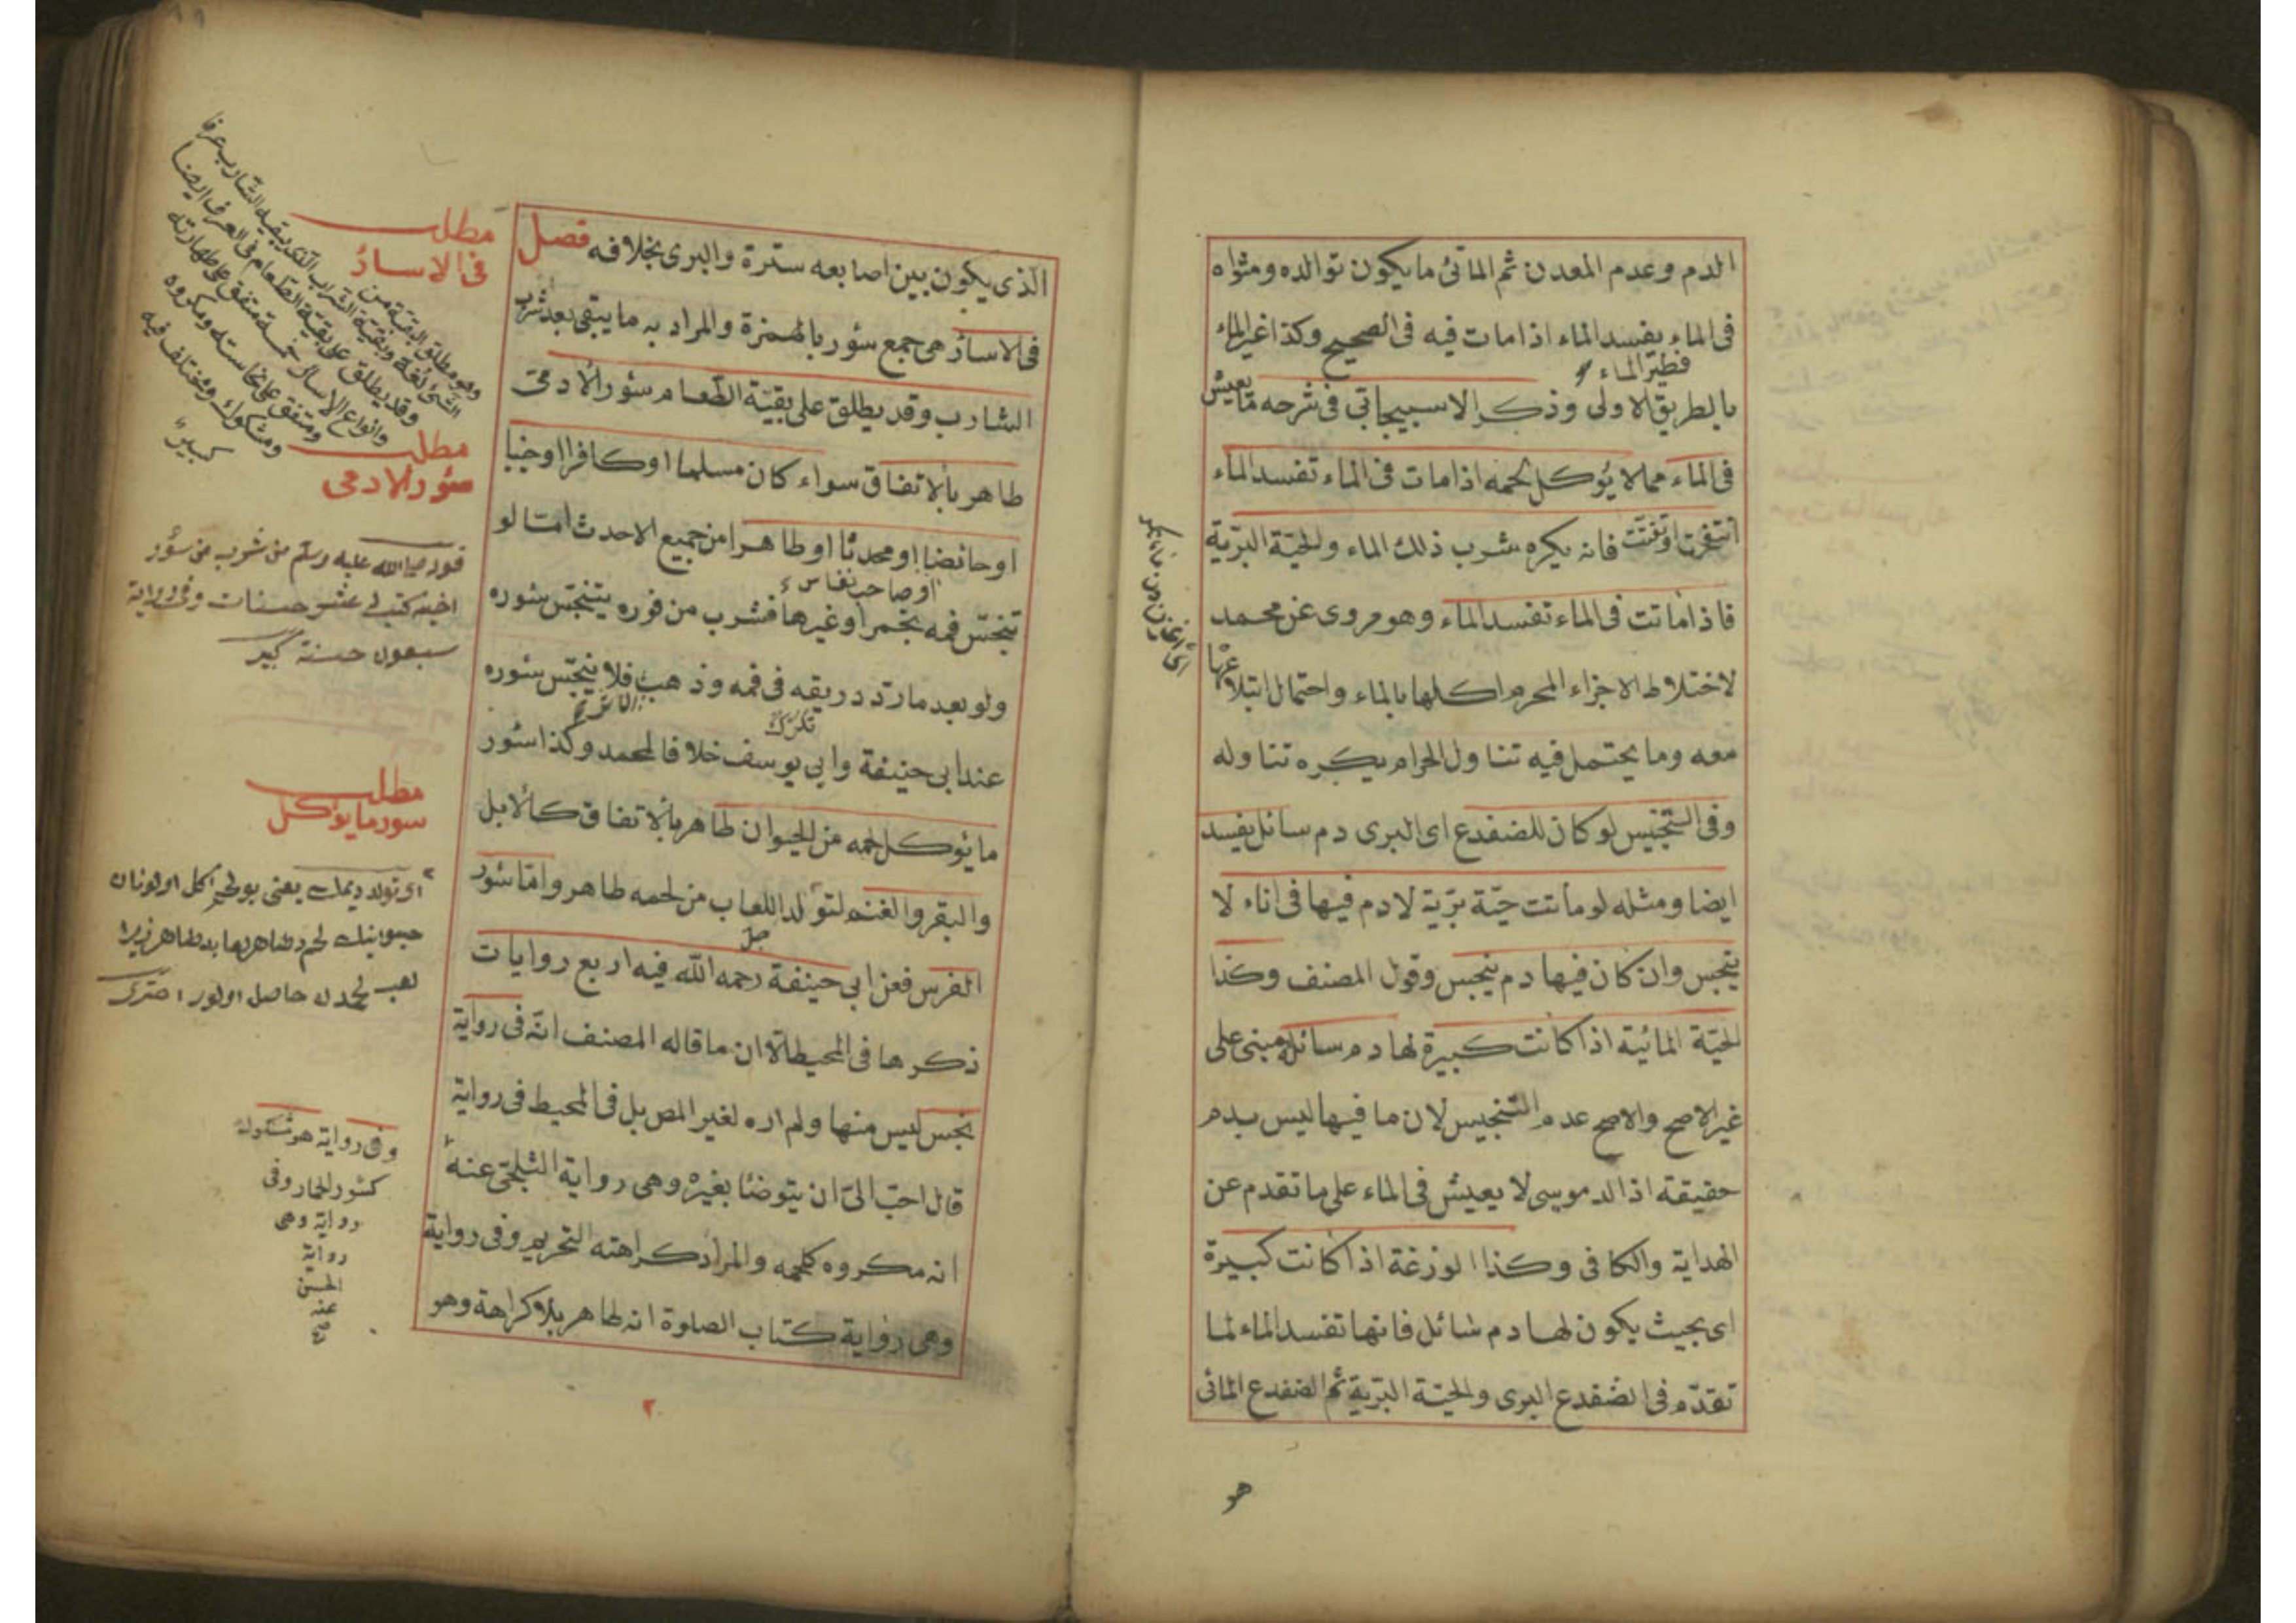 الدم وعدم المعدن ثم المائى ما يكون توالده ومثواه
فى الماء يفسد الماء اذا مات فيه فى الصحيح وكذا غير الماء
فطير الماء
بالطريق الاولى وذكر الاسبيجابى فى شرحه ما يعيش
فى الماء مما لا يؤكل لحمه اذا مات فى الماء تفسد الماء
انتفخت او تفتت فانه يكره شرب ذلك الماء والحية البرية
فاذا ماتت فى الماء تفسد الماء وهو مروى عن محمد
لاختلاط الاجزاء المحرم اكلها بالماء واحتمال ابتلاعها
معه وما يحتمل فيه تناول الحرام يكره تناوله
وفى التجنيس لو كان للضفدع اى البرى دم سائل يفسد
ايضا ومثله لو ماتت حية برية لا دم فيها فى اناء لا
ينجس وان كان فيها دم ينجس وقول المصنف وكذا
الحية المائية اذا كانت كبيرة لها دم سائل مبنى على
غير الاصح والاصح عدم التنجيس لان ما فيها ليس بدم
حقيقة اذ الدموى لا يعيش فى الماء على ما تقدم عن
الهداية والكافى وكذا الوزغة اذا كانت كبيرة
اى بحيث يكون لها دم سائل فانها تفسد الماء لما
تقدم فى الضفدع البرى والحية البرية ثم الضفدع المائى
هو
الذى يكون بين اصابعه سترة والبرى بخلافه فصل
فى الاسار هى جمع سؤر بالهمزة والمراد به ما يبقى بعد شرب
الشارب وقد يطلق على بقية الطعام سؤر الادمى
طاهر بالاتفاق سواء كان مسلما او كافرا او جنبا
او حائضا او محدثا او طاهرا من جميع الاحدث امّا لو
او صاحب نفاس
تنجس فمه بخمر او غيرها فشرب من فوره يتنجس سؤره
ولو بعد ما رتدد ريقه فى فمه وذهب فلا ينجس سؤره
عند ابى حنيفة وابى يوسف خلافا لمحمد وكذا سؤر
ما يؤكل لحمه من الحيوان طاهر بالاتفاق كالابل
والبقر والغنم لتولد اللعاب من لحمه طاهر واما سؤر
الفرس فعن ابى حنيفة رحمه الله فيه اربع روايات
ذكرها فى المحيط الا ان ما قاله المصنف انه فى رواية
نجس ليس منها ولم اره لغير المص بل فى المحيط فى رواية
قال احب الى ان يتوضئا بغيره وهى رواية البلخى عنه
انه مكروه كلحمه والمراد كراهته التحريم وفى رواية
وهى رواية كتاب الصلوة انه طاهر بلا كراهة وهو
٢
مطلب
فى الاسار
وهو مطلق البقية من
الشئ لغة وبقية الشراب التى يبقيه الشارب عرفا
وقد يطلق على بقية الطعام فى العرف ايضا
وانواع الاسار خمسة متفق على طهارته
ومتفق على نجاسته ومكروه
ومشكوك ومختلف فيه
كبير
مطلب
سؤر الادمى
قوله صلى الله عليه وسلم من شرب من سؤر
اخيه كتب له عشر حسنات وفى رواية
سبعون حسنة كبير
مطلب
سور ما يؤكل
اى تولد ديمك يعنى بو لحم اكل اولونان
حيوانينك لحم طاهر
لحمدن حاصل اولور
وفى رواية هو مشكوك
كسؤر الحمار وفى
رواية وهى
رواية
الحسن
عنه
صح